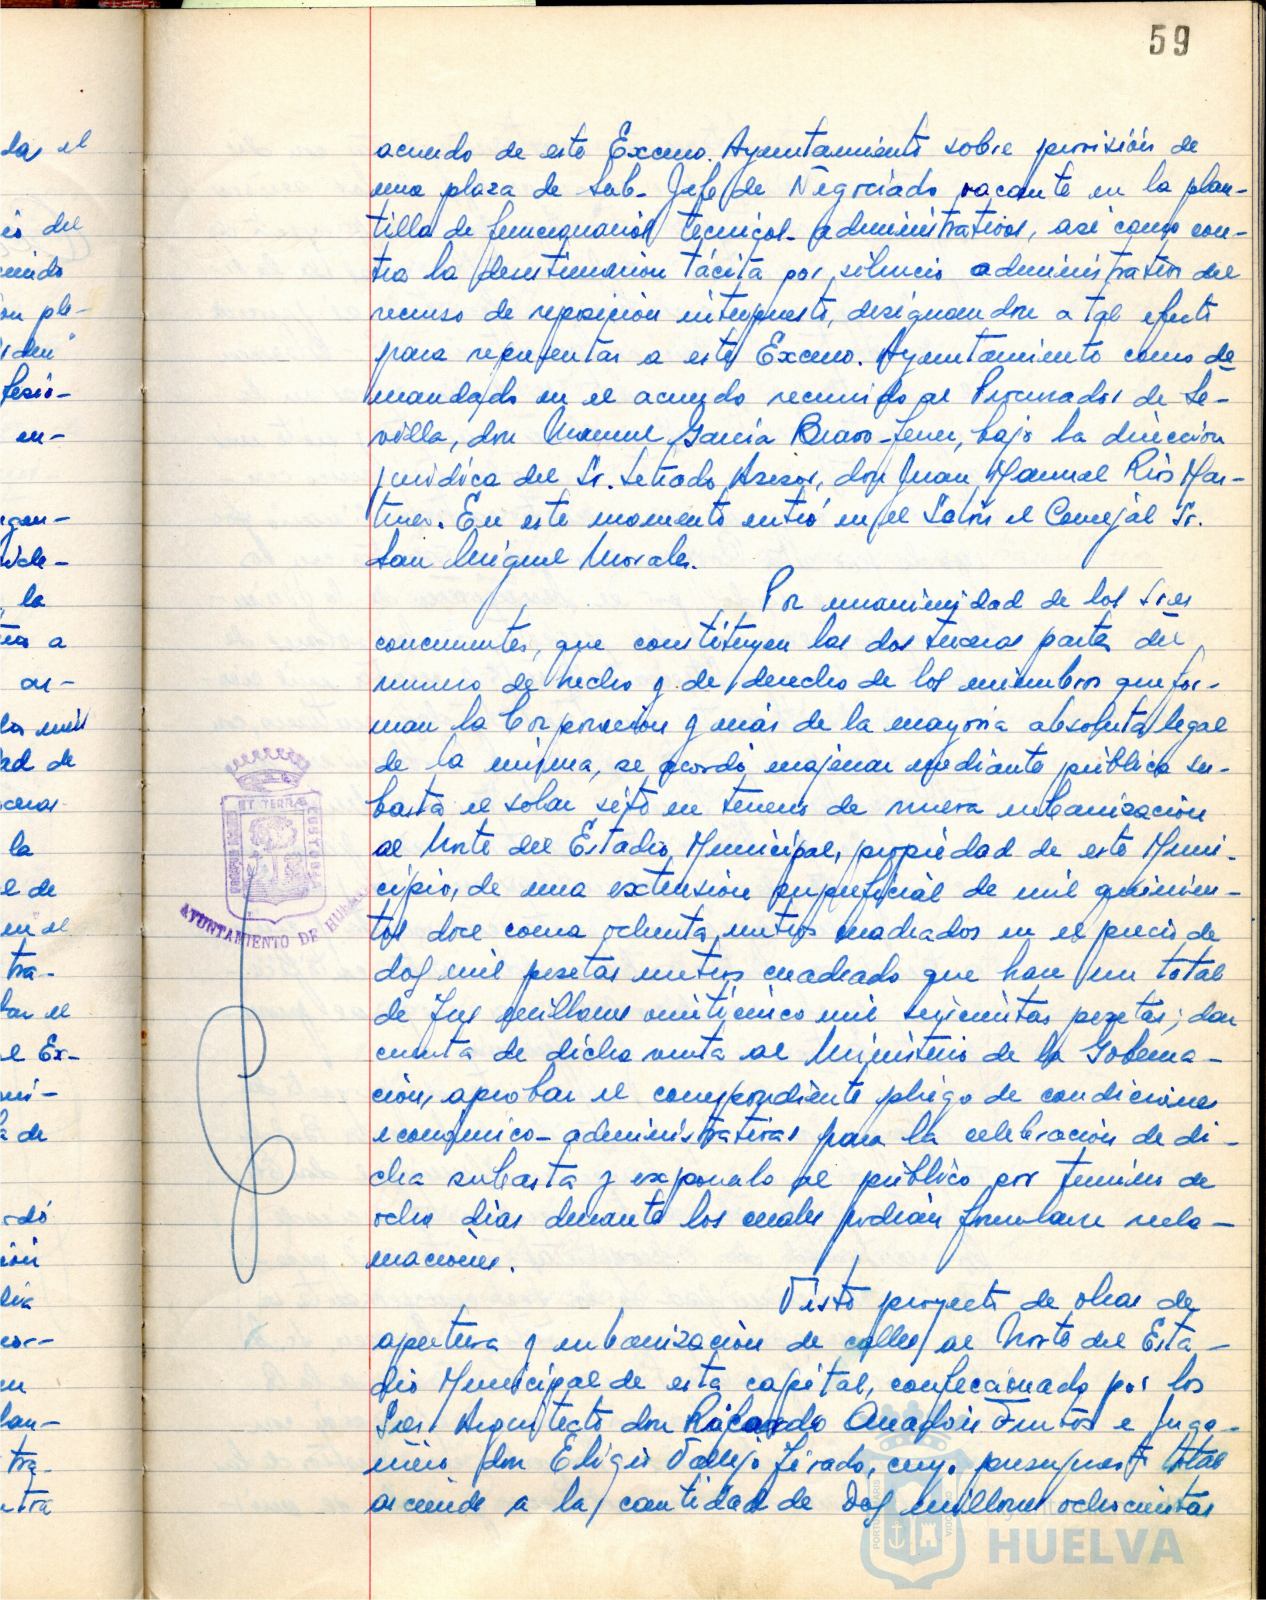 59
acuerdo de este Excmo. Ayuntamiento sobre provisión de
una plaza de Sub-Jefe de Negociado vacante en la plan-
tilla de funcionarios técnicos-administrativos, así como con-
tra la desestimación tácita por silencio administrativo del
recurso de reposición interpuesto, designandose a tal efecto
para representar a este Excmo. Ayuntamiento como de
mandado en el acuerdo recurrido al Procurador de Se-
villa, don Manuel García Bravo-Ferrer, bajo la dirección
jurídica del Sr. Letrado Asesor, don Juan Manuel Rios Mar-
tinez. En este momento entró en el Salón el Concejal Sr.
San Miguel Morales.
Por unanimidad de los Sres
concurrentes, que constituyen las dos terceras partes del
número de hecho y de derecho de los miembros que for-
man la Corporación y más de la mayoría absoluta legal
de la misma, se acordó enajenar mediante pública su-
basta el solar sito en terreno de nueva urbanización
al Norte del Estadio Municipal, propiedad de este Muni-
cipio, de una extensión superficial de mil quinien-
tos doce coma ochenta metros cuadrados en el precio de
dos mil pesetas metro cuadrado que hace un total
de tres millones veinticinco mil seiscientas pesetas; dar
cuenta de dicha venta al Ministerio de la Goberna-
ción, aprobar el correspondiente pliego de condiciones
económico-administrativas para la celebración de di-
cha subasta y exponerlo al público por término de
ocho días durante los cuales podrán formularse recla-
maciones.
Visto proyecto de obras de
apertura y urbanización de calles al Norte del Esta-
dio Municipal de esta capital, confeccionado por los
Sres Arquitecto don Ricardo Anadón Frutos e Inge-
niero don Eligio Vallejo Tirado, cuyo presupuesto total
asciende a la cantidad de dos millones ochocientas
AYUNTAMIENTO DE HUELVA
HUELVA